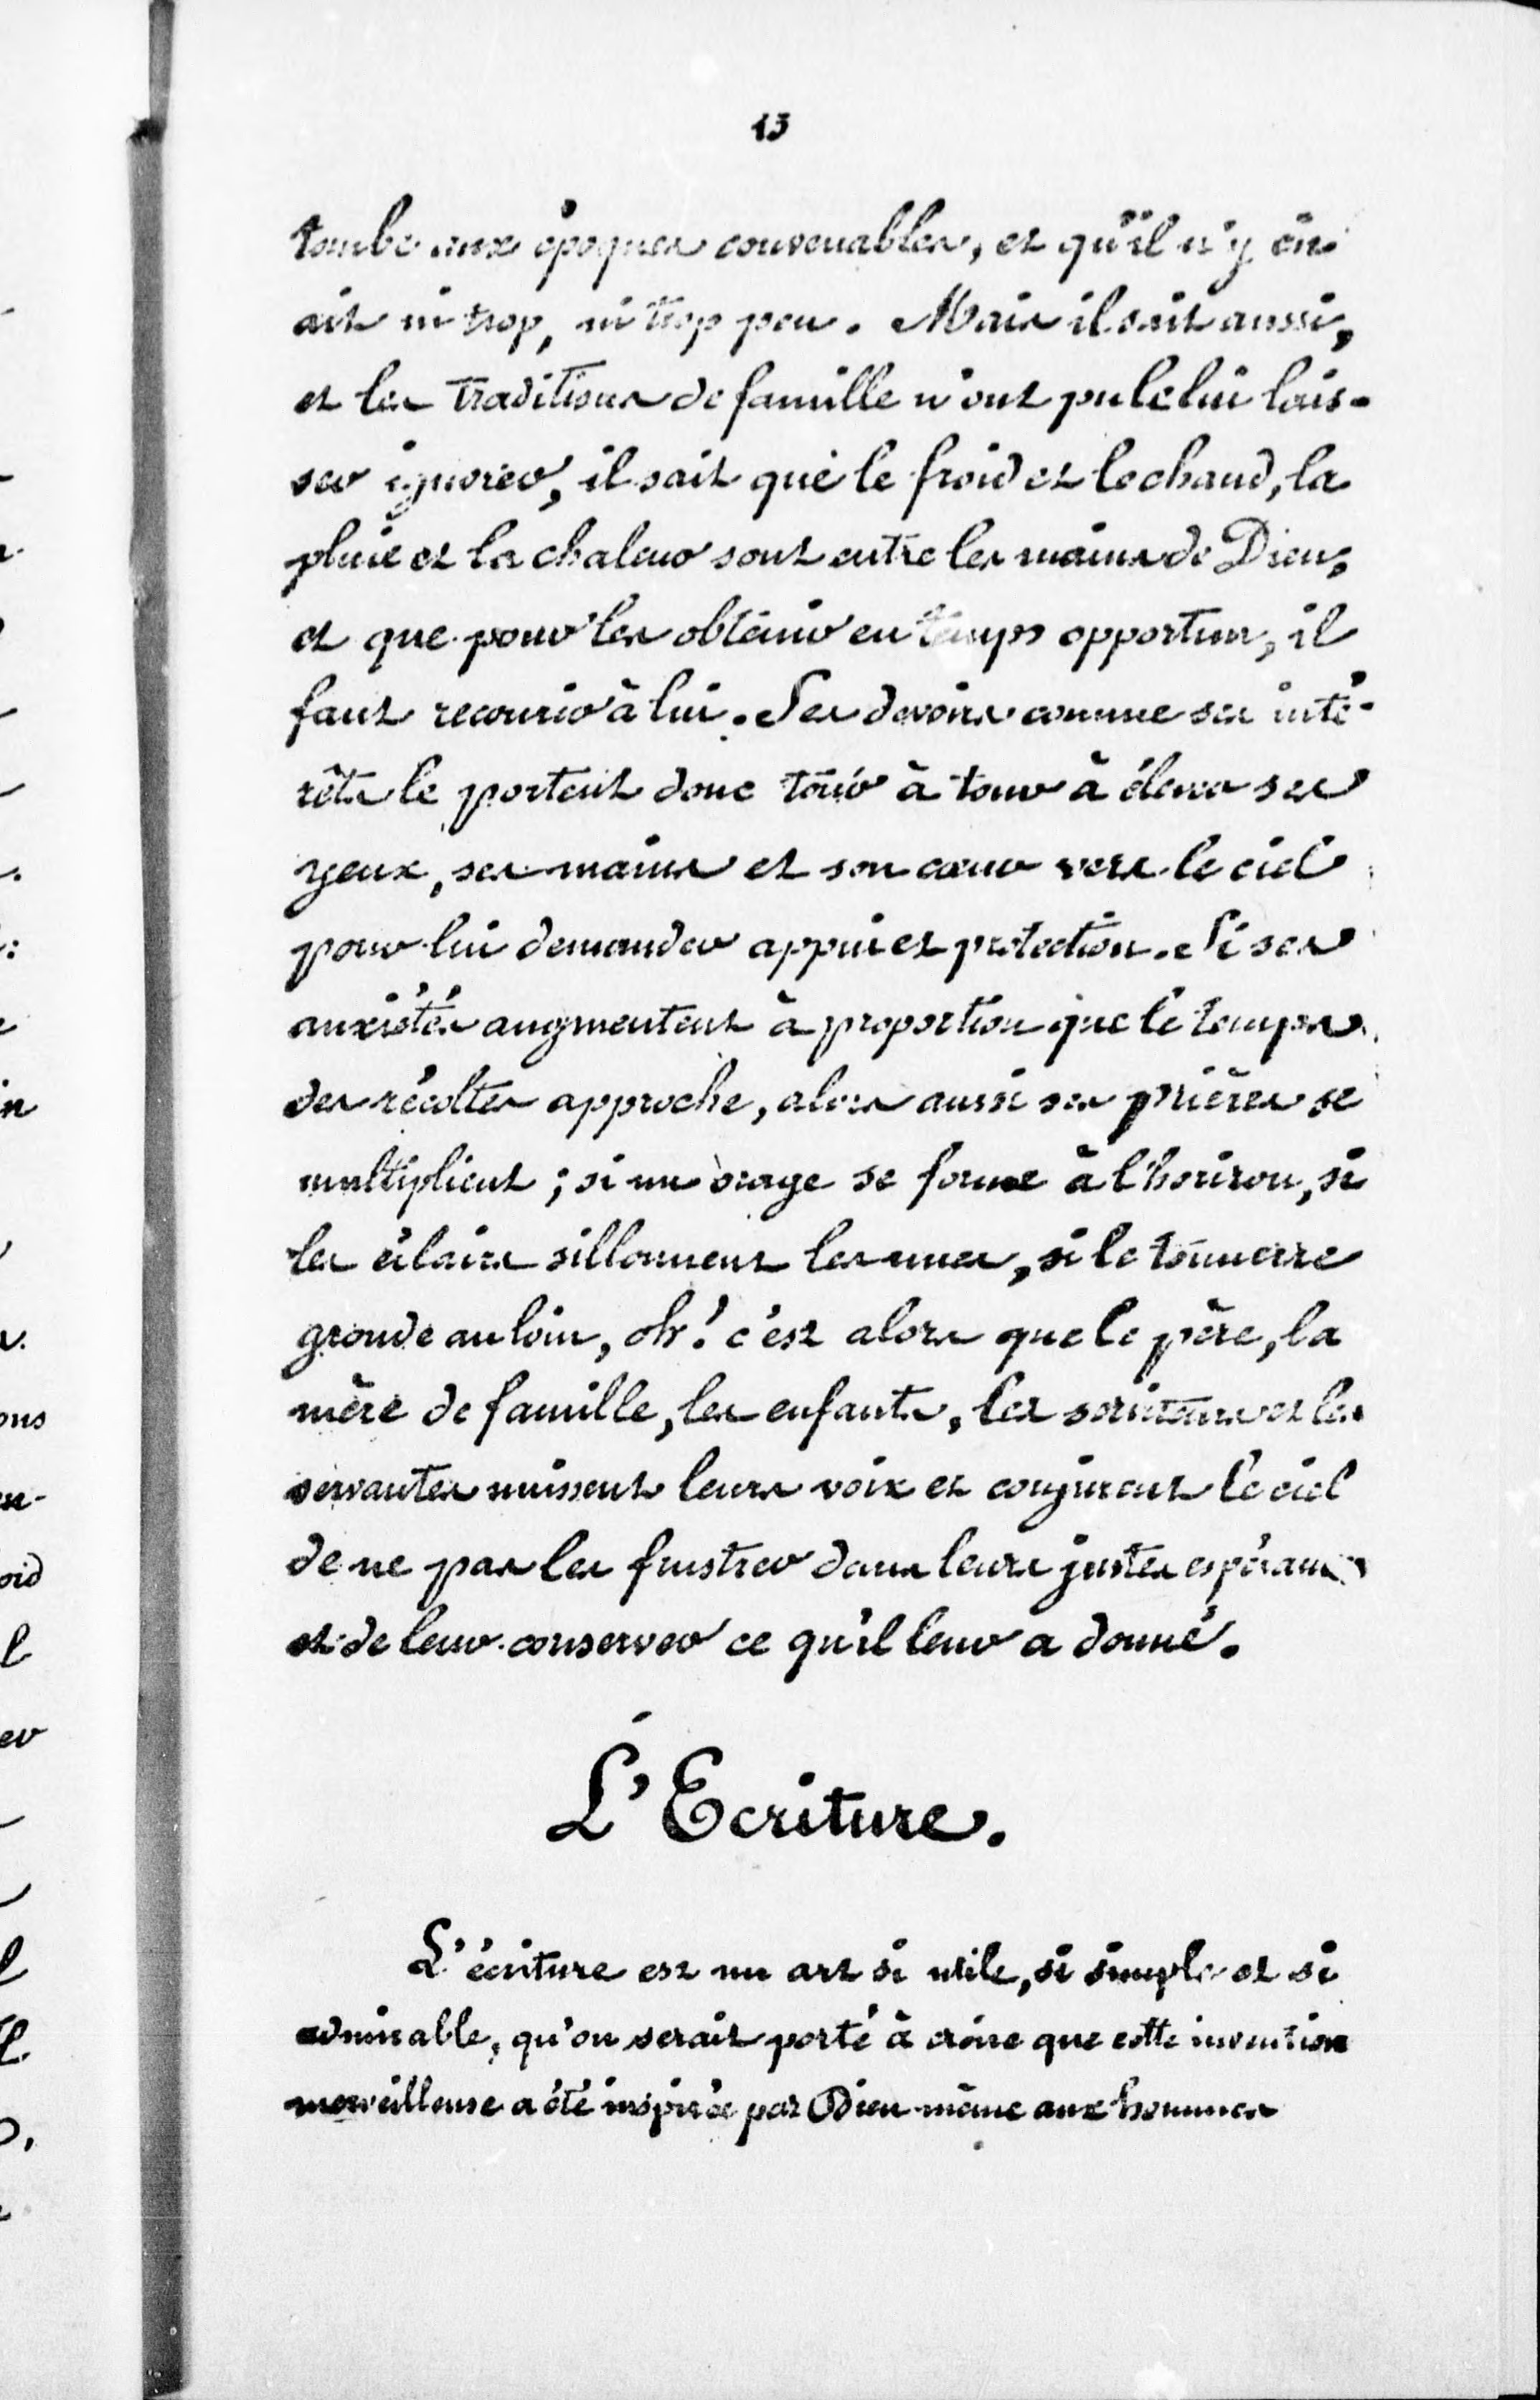 13
tombe aux époques convenables, et qu'il n'y en
ait ni trop, ni trop peu. Mais il sait aussi,
et les traditions de famille n'ont pu le lui lais-
ser ignorer, il sait que le froid et le chaud, la
pluie et la chaleur sont entre les mains de Dieu,
et que pour les obtenir en temps opportun, il
faut recourir à lui. Ses devoirs comme ses inté-
rêts le portent donc tour à tour à élever ses
yeux, ses mains et son cœur vers le ciel
pour lui demander appui et protection. Si ses
anxiétés augmentent à proportion que le temps
des récoltes approche, alors aussi ses prières se
multiplient ; si un orage se forme à l'horizon, si
les éclairs sillonnent les nues, si le tonnerre
gronde au loin, oh ! c'est alors que le père, la
mère de famille, les enfants, les serviteurs et les
servantes unissent leurs voix et conjurent le ciel
de ne pas les frustrer dans leurs justes espérances
et de leur conserver ce qu'il leur a donné.
L'Ecriture.
L'écriture est un art si utile, si simple et si
admirable, qu'on serait porté à croire que cette invention
merveilleuse a été inspirée par Dieu même aux hommes